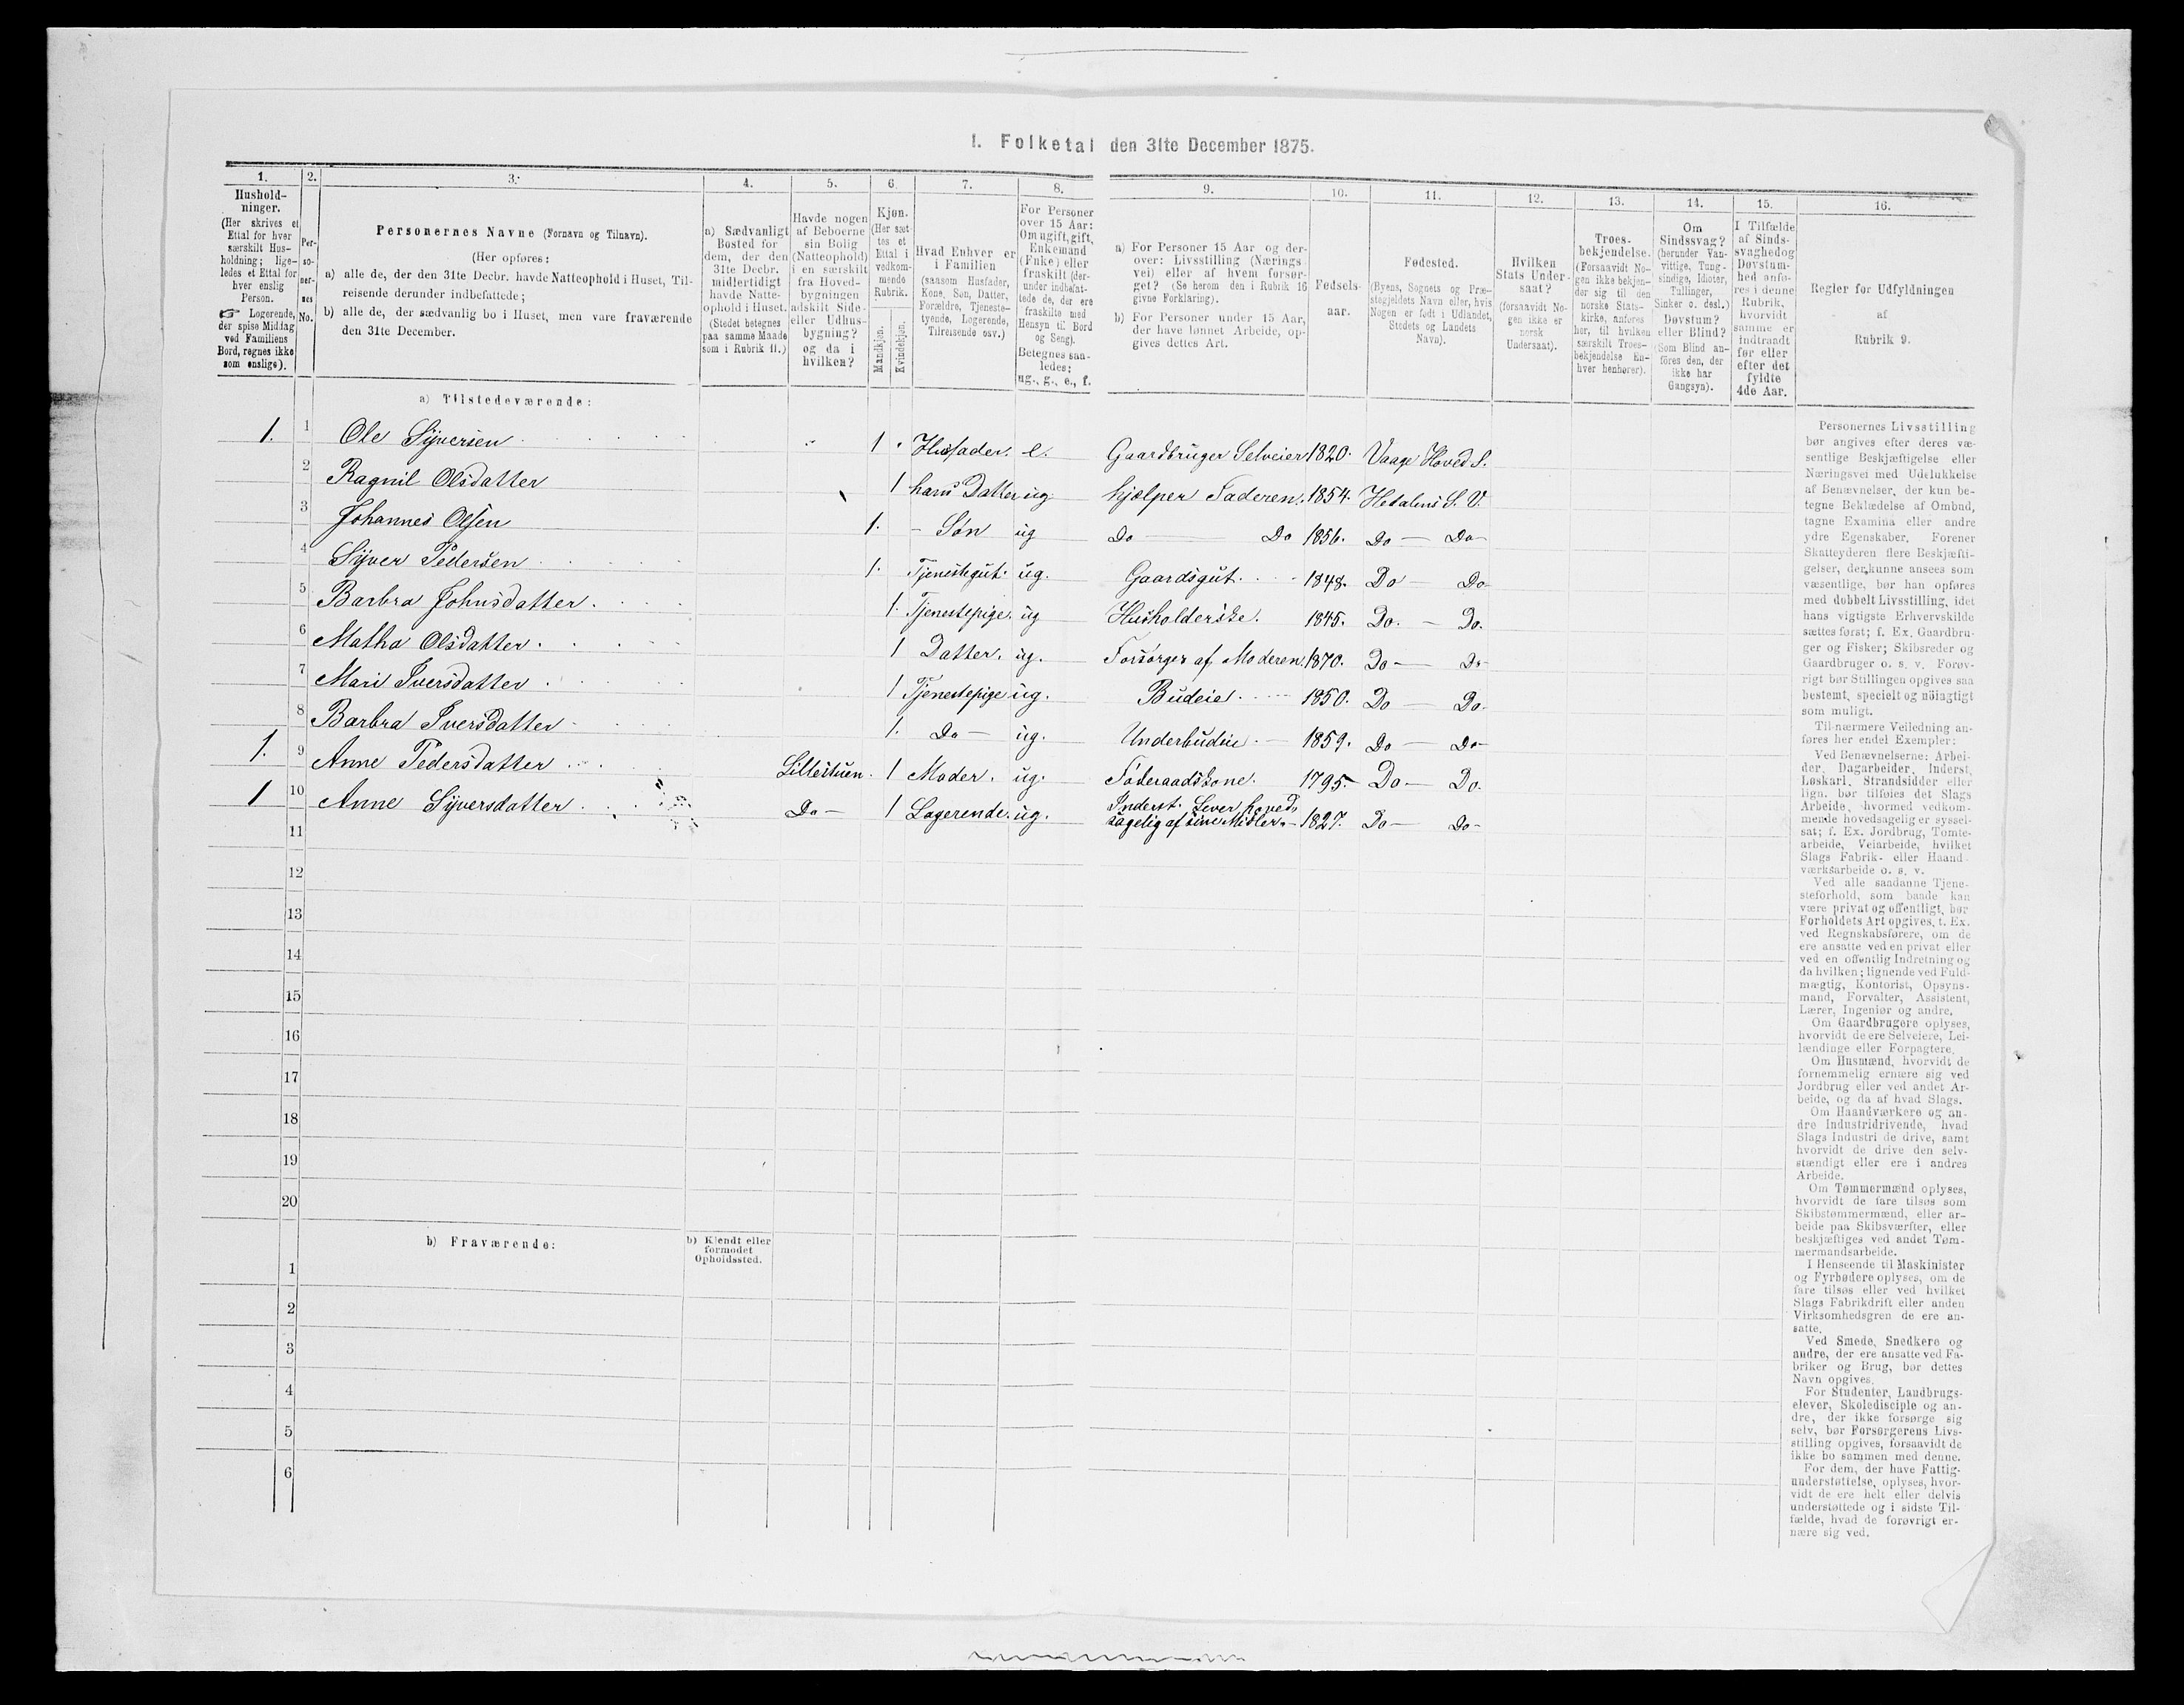 1. Folketal den 31te December 1875.
1. 2. 3. 4. 5. 6. 7. 8. 9. 10. 11. 12. 13. 14. 15. 16.
Hushold-
ninger.
(Her skrives et
Ettal for hver
særskilt Hus-
holdning; lige-
ledes et Ettal for
hver enslig
Person.
☞ Logerende,
der spise Middag
ved Familiens
Bord, regnes ikke
som enslige).
Per-
so-
ner-
nes
No.
Personernes Navne (Fornavn og Tilnavn).
(Her opføres:
a) alle de, der den 31te Decbr. havde Natteophold i Huset, Til-
reisende derunder indbefattede;
b) alle de, der sædvanlig bo i Huset, men vare fraværende
den 31te December.
a) Sædvanligt
Bosted for
dem, der den
31te Decbr.
midlertidigt
havde Natte-
ophold i Huset.
(Stedet betegnes
paa samme Maade
som i Rubrik 11.)
Havde nogen
af Beboerne
sin Bolig
(Natteophold)
i en særskilt
fra Hoved-
bygningen
adskilt Side-
eller Udhus-
bygning?
og da i
hvilken?
Kjøn.
(Her sæt-
tes et
Ettal i
vedkom-
mende
Rubrik.
Mandkjøn.
Kvindekjøn.
Hvad Enhver er
i Familien
(saasom Husfader,
Kone, Søn, Datter,
Forældre, Tjeneste-
tyende, Logerende,
Tilreisende osv.)
For Personer
over 15 Aar:
Om ugift, gift,
Enkemand
(Enke) eller
fraskilt (der-
under indbefat-
tede de, der ere
fraskilte med
Hensyn til Bord
og Seng).
Betegnes saa-
ledes:
ug., g., e., f.
a) For Personer 15 Aar og der-
over: Livsstilling (Nærings-
vei) eller af hvem forsør-
get? (Se herom den i Rubrik 16
givne Forklaring).
b) For Personer under 15 Aar,
der have lønnet Arbeide, op-
gives dettes Art.
Fødsels-
aar.
Fødested.
(Byens, Sognets og Præ-
stegjeldets Navn eller, hvis
Nogen er født i Udlandet,
Stedets og Landets
Navn).
Hvilken
Stats Under-
saat?
(forsaavidt No-
gen ikke er
norsk
Undersaat).
Troes-
bekjendelse.
(Forsaavidt No-
gen ikke bekjen-
der sig til den
norske Stats-
kirke, anføres
her, til hvilken
særskilt Troes-
bekjendelse En-
hver henhører).
Om
Sindssvag?
(herunder Van-
vittige, Tung-
sindige, Idioter,
Tullinger,
Sinker o. desl.)
Døvstum?
eller Blind?
(Som Blind an-
føres den, der
ikke har
Gangsyn).
I Tilfælde
af Sinds-
svaghed og
Døvstum-
hed anfø-
res i denne
Rubrik,
hvorvidt
samme er
indtraadt
før eller
efter det
fyldte
4de Aar.
Regler for Udfyldningen
af
Rubrik 9.
a) Tilstedeværende:
1. 1 Ole Syversen 1 Husfader. e. Gaardbruger Selveier 1820. Vaage Hoved S.
2 Ragnil Olsdatter 1 hans Datter ug hjælper Faderen. 1854. Hedalens S. V.
3 Johannes Olsen 1. - Søn ug Do — Do 1856. Do — Do
4 Syver Pedersen 1. Tjenestegut. ug. Gaardsgut. 1848. Do — Do
5 Barbra Johnsdatter. 1. Tjenestepige. ug Husholderske. 1845. Do. — Do.
6 Matha Olsdatter. 1 Datter. ug. Forsørges af Moderen. 1870. Do — Do
7 Mari Iversdatter. 1 Tjenestepige ug. Budeie. 1850. Do — Do.
8 Barbra Iversdatter 1. Do — ug. Underbudeie. 1859. Do — Do
1. 9 Anne Pedersdatter Lillestuen. 1 Moder. ug. Føderaadskone. 1795. Do — Do.
1 10 Anne Syversdatter. Do — 1 Logerende. ug. Inderst. Lever hoved-
sagelig af sine Midler. 1827. Do — Do
11
12
13
14
15
16
17
18
19
20
b) Fraværende:
b) Kjendt eller
formodet
Opholdssted.
1
2
3
4
5
6
Personernes Livsstilling
bør angives efter deres væ-
sentlige Beskjæftigelse eller
Næringsvei med Udelukkelse
af Benævnelser, der kun be-
tegne Beklædelse af Ombud,
tagne Examina eller andre
ydre Egenskaber. Forener
Skatteyderen flere Beskjæfti-
gelser, der kunne ansees som
væsentlige, bør han opføres
med dobbelt Livsstilling, idet
hans vigtigste Erhvervskilde
sættes først; f. Ex. Gaardbru-
ger og Fisker; Skibsreder og
Gaardbruger o. s. v. Forøv-
rigt bør Stillingen opgives saa
bestemt, specielt og nöiagtigt
som muligt.
Til nærmere Veiledning an-
føres her endel Exempler:
Ved Benævnelserne: Arbei-
der, Dagarbeider, Inderst,
Løskarl, Strandsidder eller
lign. bør tilføies det Slags
Arbeide, hvormed vedkom-
mende hovedsagelig er syssel-
sat; f. Ex. Jordbrug, Tomte-
arbeide, Veiarbeide, hvilket
Slags Fabrik- eller Haand-
værksarbeide o. s. v.
Ved alle saadanne Tjene-
steforhold, som baade kan
være privat og offentligt, bør
Forholdets Art opgives, t. Ex.
ved Regnskabsførere, om de
ere ansatte ved en privat eller
ved en offentlig Indretning og
da hvilken; lignende ved Fuld-
mægtig, Kontorist, Opsyns-
mand, Forvalter, Assistent,
Lærer, Ingeniør og andre.
Om Gaardbrugere oplyses,
hvorvidt de ere Selveiere, Lei-
lændinge eller Forpagtere.
Om Husmænd, hvorvidt de
fornemmelig ernære sig ved
Jordbrug eller ved andet Ar-
beide, og da af hvad Slags.
Om Haandværkere og an-
dre Industridrivende, hvad
Slags Industri de drive, samt
hvorvidt de drive den selv-
stændigt eller ere i andres
Arbeide.
Om Tømmermænd oplyses,
hvorvidt de fare tilsøs som
Skibstømmermænd, eller ar-
beide paa Skibsværfter, eller
beskjæftiges ved andet Tøm-
mermandsarbeide.
I Henseende til Maskinister
og Fyrbødere oplyses, om de
fare tilsøs eller ved hvilket
Slags Fabrikdrift eller anden
Virksomhedsgren de ere an-
satte.
Ved Smede, Snedkere og
andre, der ere ansatte ved Fa-
briker og Brug, bør dettes
Navn opgives.
For Studenter, Landbrugs-
elever, Skoledisciple og an-
dre, der ikke forsørge sig
selv, bør Forsørgerens Livs-
stilling opgives, forsaavidt de
ikke bo sammen med denne.
For dem, der have Fattig-
understøttelse, oplyses, hvor-
vidt de ere helt eller delvis
understøttede og i sidste Til-
fælde, hvad de forøvrigt er-
nære sig ved.